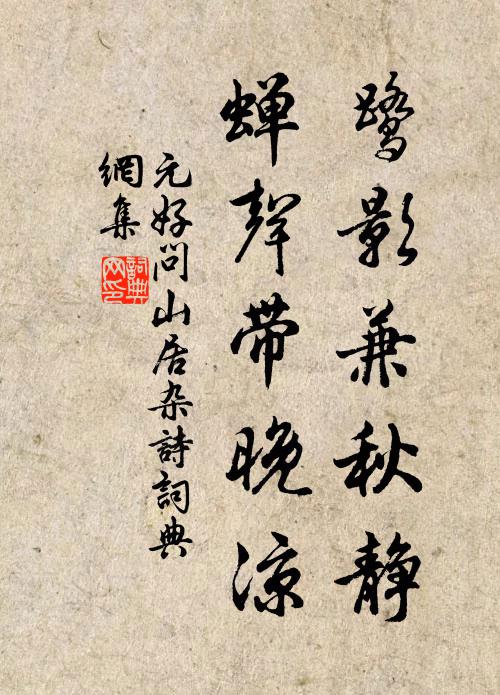 鹭影兼秋静
蝉聲带晚凉
元好问山居杂詩詞典
網集
詞典
网印